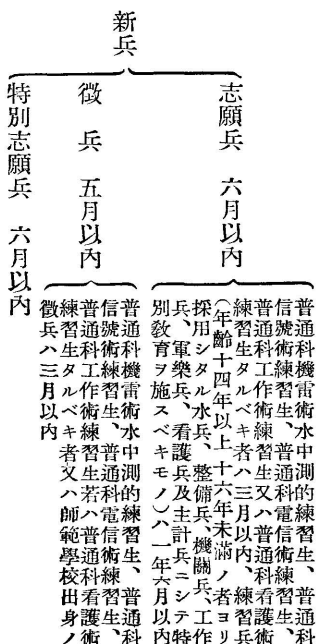 新兵
志願兵 六月以內
普通科機雷術水中測的練習生、普通科
信號術練習生、普通科電信術練習生、
普通科工作術練習生又ハ普通科看護術
練習生タルベキ者ハ三月以內、練習兵
(年齡十四年以上十六年未滿ノ者ヨリ
採用シタル水兵、整備兵、機關兵、工作
兵、軍樂兵、看護兵及主計兵ニシテ特
別敎育ヲ施スベキモノ)ハ一年六月以內
徵兵 五月以內
普通科機雷術水中測的練習生、普通科
信號術練習生、普通科電信術練習生、
普通科工作術練習生若ハ普通科看護術
練習生タルベキ者又ハ師範學校出身ノ
徵兵ハ三月以內
特別志願兵 六月以內